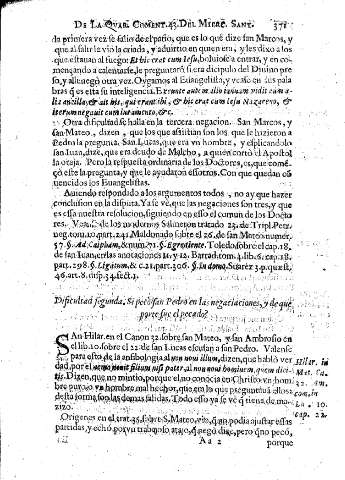 DE LA QVAR. COMENT. 43. DEL MIERC. SANT. 371
da primera vez se salio de el patio, que es lo que dize san Marcos, y
que al salir la vio la criada, y aduirtio en quien era, y les dixo a los
que estauan al fuego: Et hic erat cum Iesu, boluiose a entrar, y en co-
mençando a calentarse, le preguntarõ si era dicipulo del Diuino pre
so, y negolo otra vez. Oygamos al Euangelista, y verase en sus pala
bras q̃ es esta su inteligencia. Exeunte autem illo ianuam vidit eum a-
lia ancilla, & ait his, qui erant ibi, & hic erat cum Iesu Nazareno, &
iterum negauit cum iuramento, &c.
Otra dificultad se halla en la tercera negacion. San Marcos, y
san Mateo, dizen, que los que assistian son los que le hizieron a
Pedro la pregunta. San Lucas, que era vn hombre, y esplicandolo
san Iuan, dize, que era deudo de Malcho, a quien cortò el Apostol
la oreja. Pero la respuesta ordinaria de los Doctores, es, que come-
çò este la pregunta, y que le ayudaron essotros. Con que quedan cõ
uencidos los Euangelistas.
Auiendo respondido a los argumentos todos, no ay que hazer
conclusion en la disputa. Ya se vè, que las negaciones son tres, y que
es essa nuestra resolucion, siguiendo en esso el comun de los Docto
res. de los modernos Salmeron tratado 23. de Tripl. Petr.
neg. tom. 10. part. 41. Maldonado sobre el 26. de san Mateo numer.
57. §. Ad Caipham, & num. 71. §. Egrotiente. Toledo sobre el cap. 18.
de san Iuan, en las anotaciones 11. y 12. Barrad. tom. 4. lib. 6. cap. 18.
part. 298. §. Ligatum, & c. 21. part. 306. §. In domo, Suarez 3. p. quæst.
46. art. 8. disp. 34. sect. 1.
Dificultad segunda, Si pecò san Pedro en las negaciaciones, y de què
parte fue el pecado?
SAn Hilar. en el Canon 32. sobre san Mateo, y san Ambrosio en
el lib. 10. sobre el 22. de san Lucas escusan a san Pedro. Valense
para esto, de la ansibologia al non noui illum, dizen, que hablò ver
dad, por el nemo nouit filium nisi pater, al non noui hominem, quem dici-
tis. Dizen, que no mintio, porque èl no conocia en Christo vn hom
bre puro, o vn hombre mal hechor, que en la que preguntauã ellos
desta forma son las demas salidas. Todo esso ya se vè q̃ tiene da ma-
zizo.
Origenes en el trat. 35. sobre S. Mateo, viẽ, q̃ san podia ajustar essas
partidas, y echò por vn trabajoso atajo, q̃ negò dize, pero q̃ no pecò,
Aa 2 porque
Hilar. in
Met. Ca.
32. Am.
com. in
Lu. 10.
cap. 22.